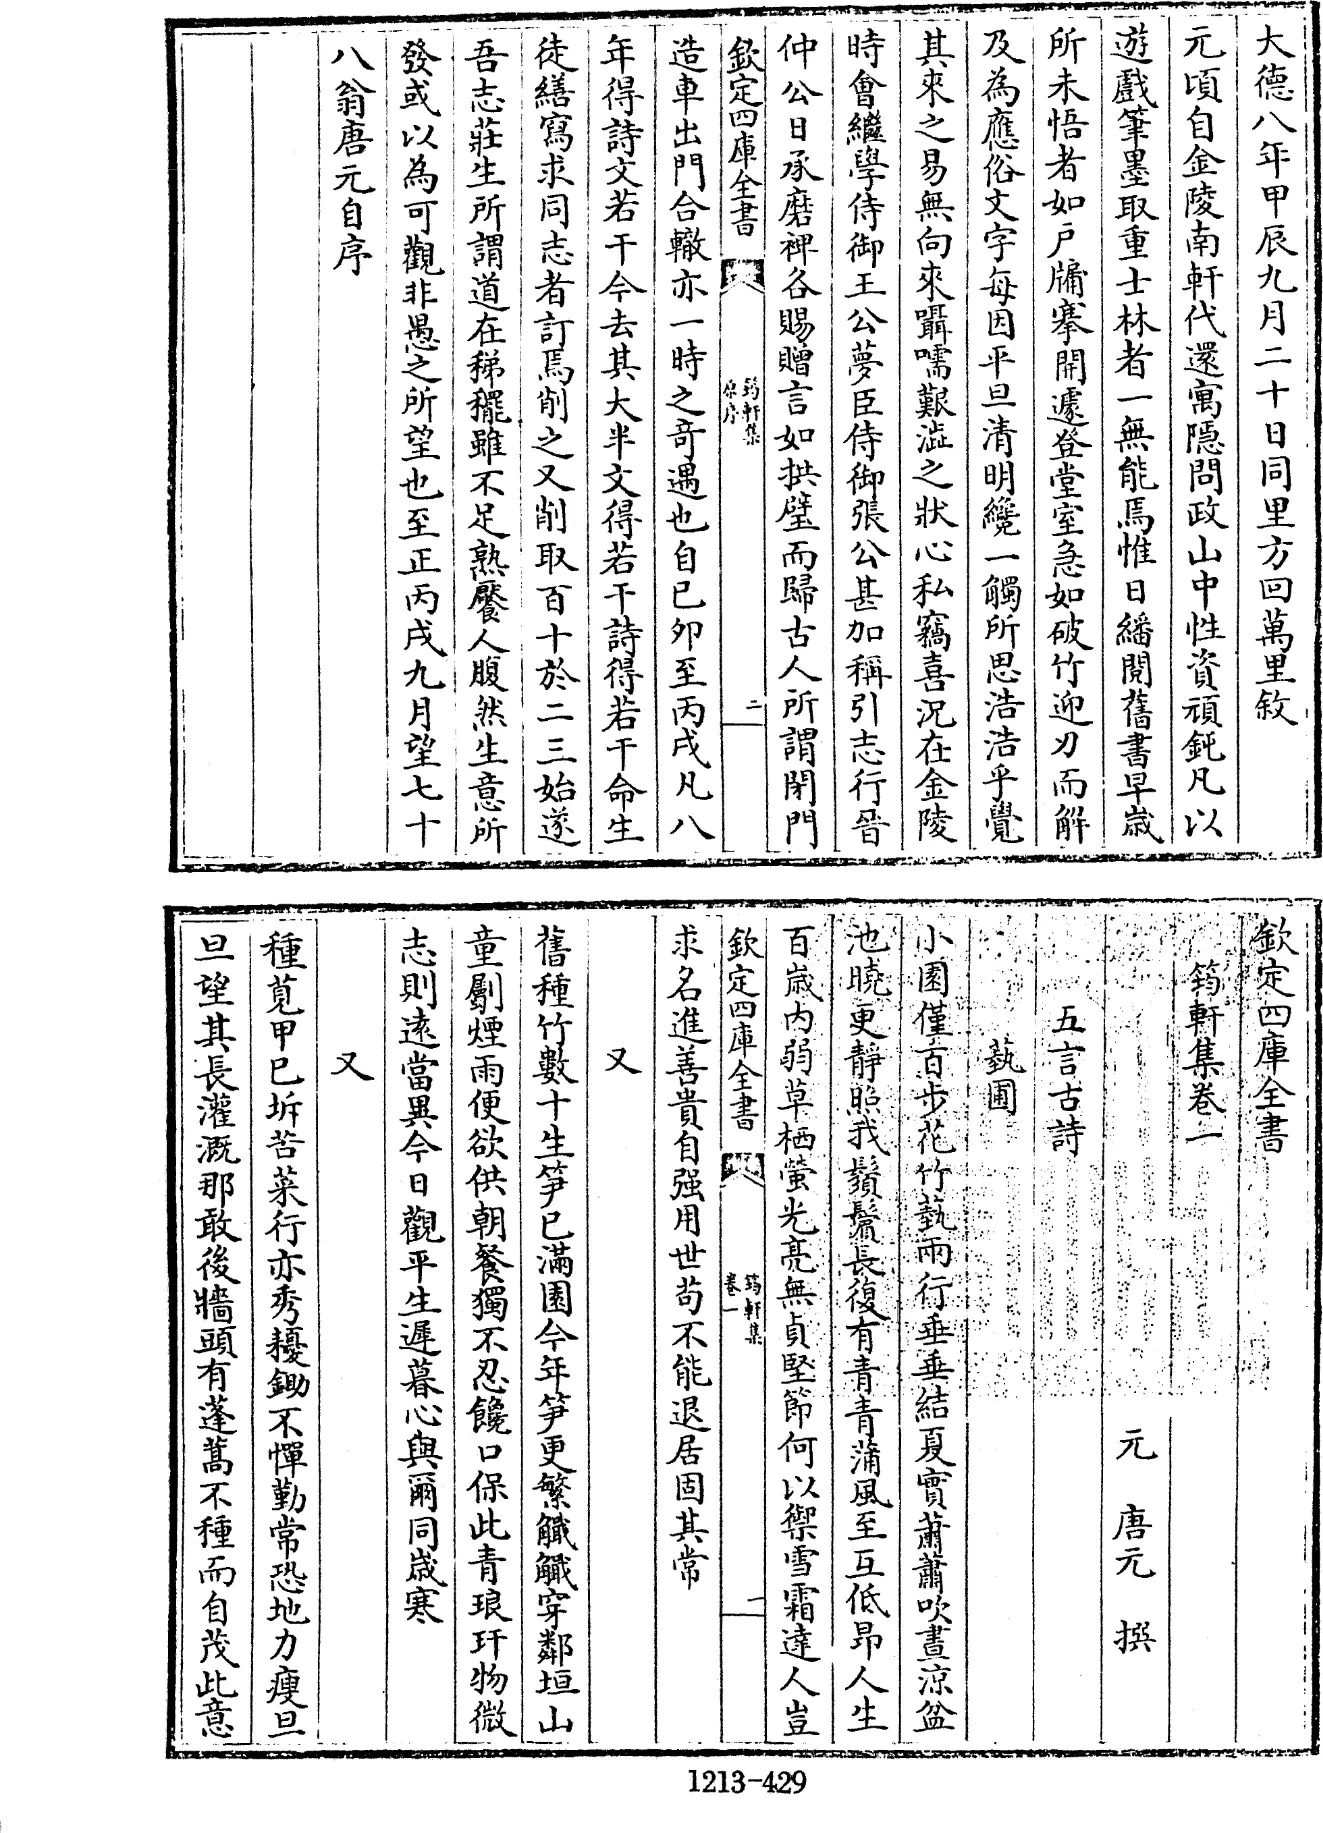 大德八年甲辰九月二十日同里方回萬里敘
元頃自金陵南軒代還寓隱問政山中性資頑鈍凡以
遊戲筆墨取重士林者一無能焉惟日繙閱舊書早歲
所未悟者如戶牖搴開遽登堂室急如破竹迎刃而解
及為應俗文字每因平旦清明纔一觸所思浩浩乎覺
其來之易無向來囁嚅艱澁之狀心私竊喜況在金陵
時會繼學侍御王公夢臣侍御張公甚加稱引志行晉
仲公日承磨禆各賜贈言如拱璧而歸古人所謂閉門
欽定四庫全書
筠軒集
原序
二
造車出門合轍亦一時之奇遇也自已卯至丙戌凡八
年得詩文若干今去其大半文得若干詩得若干命生
徒繕寫求同志者訂焉削之又削取百十於二三始遂
吾志莊生所謂道在稊稗雖不足熟饜人腹然生意所
發或以為可觀非愚之所望也至正丙戌九月望七十
八翁唐元自序
欽定四庫全書
筠軒集卷一
元 唐元 撰
五言古詩
藝圃
小園僅百步花竹藝兩行垂垂結夏實蕭蕭吹晝涼盆
池曉更靜照我鬚鬢長復有青青蒲風至互低昂人生
百歲內弱草栖螢光亮無貞堅節何以禦雪霜達人豈
欽定四庫全書
筠軒集
卷一
一
求名進善貴自强用世苟不能退居固其常
又
舊種竹數十生笋已滿園今年笋更繁觱觱穿鄰垣山
童斸煙雨便欲供朝餐獨不忍饞口保此青琅玕物微
志則遠當異今日觀平生遲暮心與爾同歲寒
又
種莧甲已坼苦菜行亦秀耰鋤不憚勤常恐地力瘦旦
旦望其長灌溉那敢後牆頭有蓬蒿不種而自茂此意
1213-429